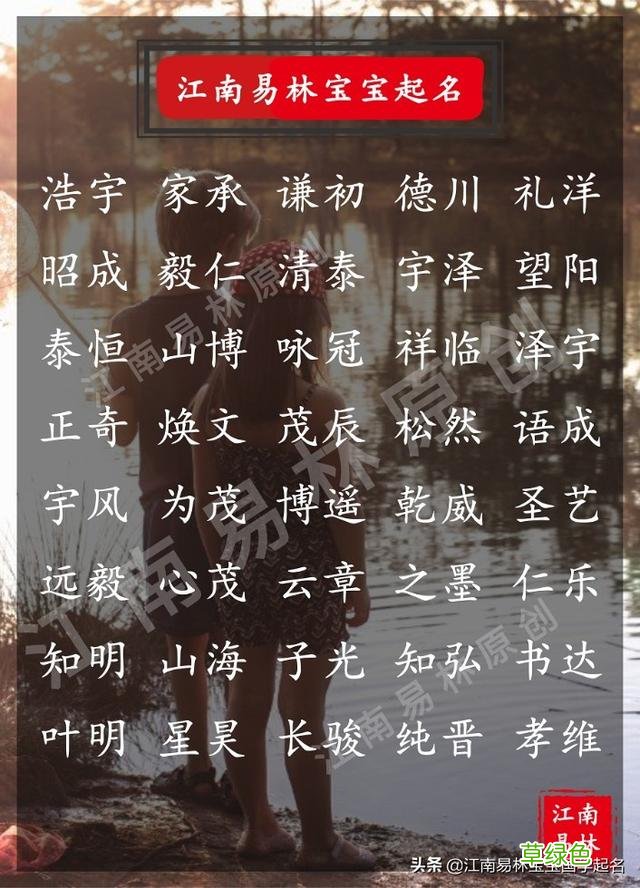 江南易林宝宝起名
浩宇 家承 谦初 德川 礼洋
昭成 毅仁 清泰 宇泽 望阳
泰恒 山博 咏冠 祥临 泽宇
正奇 焕文 茂辰 松然 语成
宇风 为茂 博遥 乾威 圣艺
远毅 心茂 云章 之墨 仁乐
知明 山海 子光 知弘 书达
叶明 星昊 长骏 纯晋 孝维
江南易林原创
江南易林原创
江南易林原创
江南
易林
草绿色
头条 @江南易林宝宝国学起名